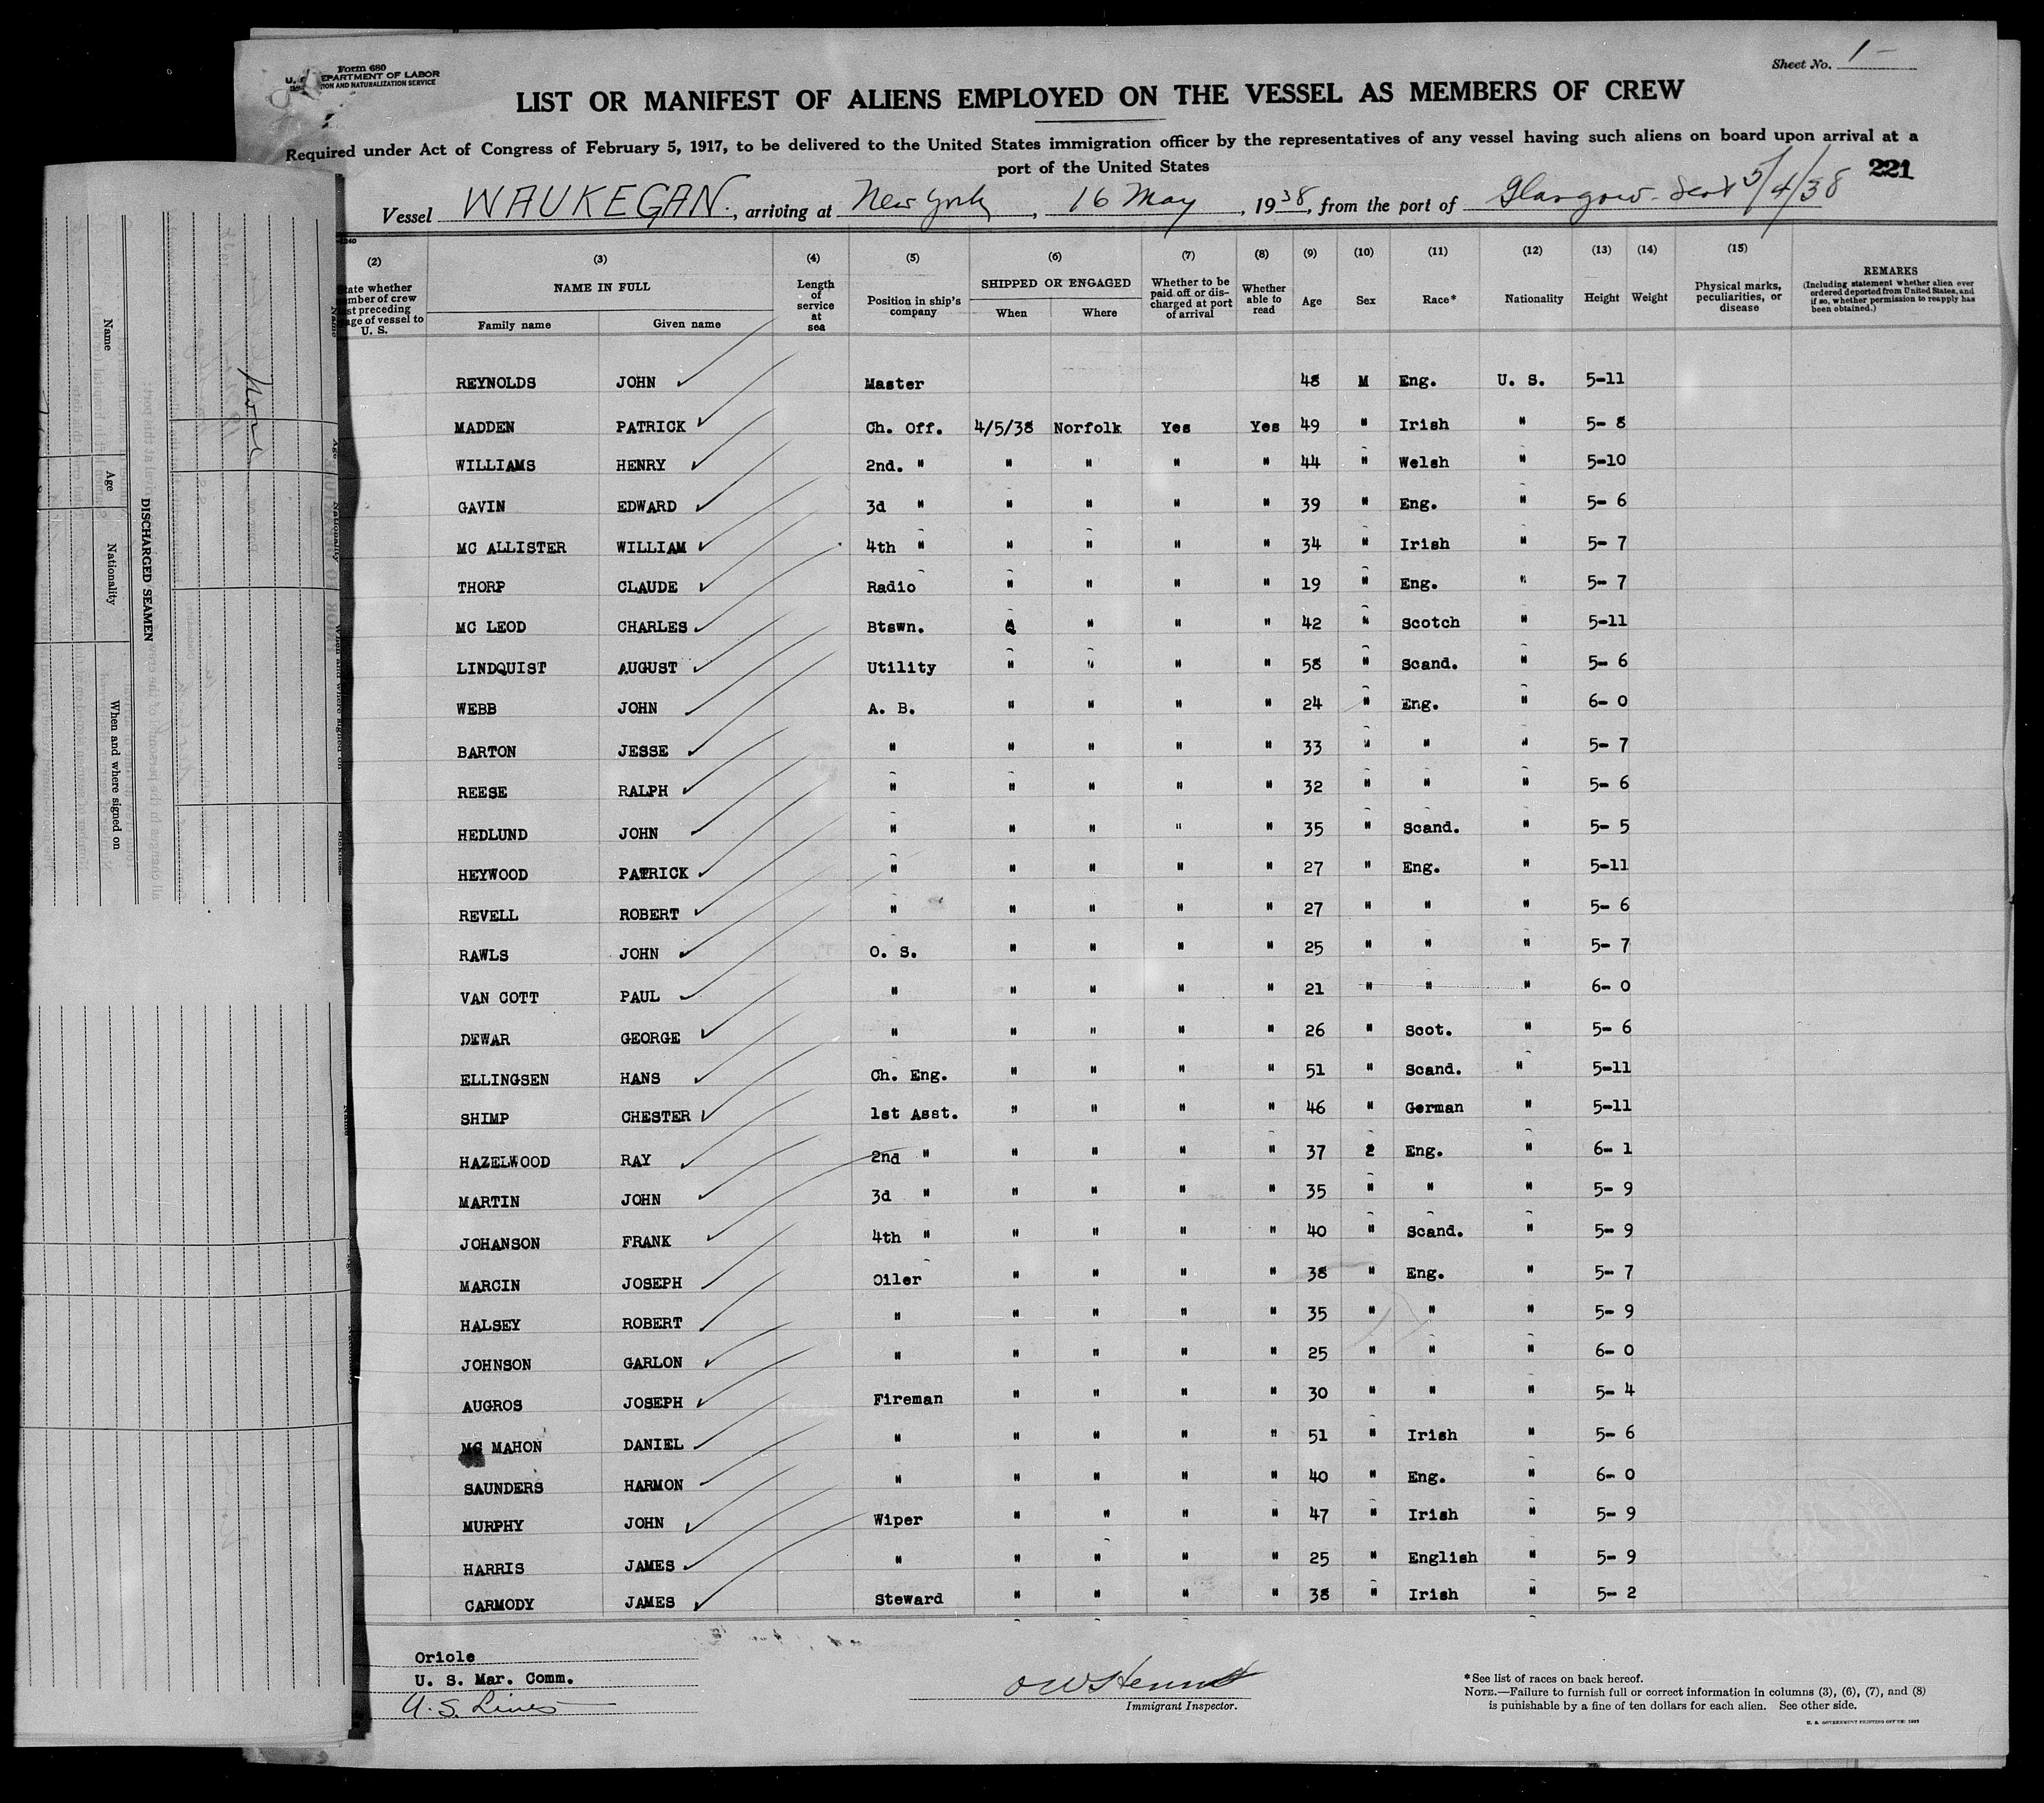 Form 680
DEPARTMENT OF LABOR
AND NATURALIZATION SERVICE
Sheet No. 1
LIST OR MANIFEST OF ALIENS EMPLOYED ON THE VESSEL AS MEMBERS OF CREW
Required under Act of Congress of February 5, 1917, to be delivered to the United States immigration officer by the representatives of any vessel having such aliens on board upon arrival at a
port of the United States
221
Vessel WAUKEGAN., arriving at New York, 16 May, 1938, from the port of Glasgow - Scot 5/4/38
(2) (3) (4) (5) (6) (7) (8) (9) (10) (11) (12) (13) (14) (15)
State whether member of crew last preceding voyage of vessel to U. S.
NAME IN FULL
Family name Given name
Length of service at sea
Position in ship's company
SHIPPED OR ENGAGED
When Where
Whether to be paid off or discharged at port of arrival
Whether able to read
Age Sex Race* Nationality Height Weight
Physical marks, peculiarities, or disease
REMARKS
(Including statement whether alien ever ordered deported from United States, and if so, whether permission to reapply has been obtained.)
REYNOLDS JOHN Master 48 M Eng. U. S. 5-11
MADDEN PATRICK Ch. Off. 4/5/38 Norfolk Yes Yes 49 " Irish " 5- 8
WILLIAMS HENRY 2nd. " " " " " 44 " Welsh " 5-10
GAVIN EDWARD 3d " " " " " 39 " Eng. " 5- 6
MC ALLISTER WILLIAM 4th " " " " " 34 " Irish " 5- 7
THORP CLAUDE Radio " " " " 19 " Eng. " 5- 7
MC LEOD CHARLES Btswn. " " " " 42 " Scotch " 5-11
LINDQUIST AUGUST Utility " " " " 58 " Scand. " 5- 6
WEBB JOHN A. B. " " " " 24 " Eng. " 6- 0
BARTON JESSE " " " " " 33 " " " 5- 7
REESE RALPH " " " " " 32 " " " 5- 6
HEDLUND JOHN " " " " " 35 " Scand. " 5- 5
HEYWOOD PATRICK " " " " " 27 " Eng. " 5-11
REVELL ROBERT " " " " " 27 " " " 5- 6
RAWLS JOHN O. S. " " " " 25 " " " 5- 7
VAN COTT PAUL " " " " " 21 " " " 6- 0
DEWAR GEORGE " " " " " 26 " Scot. " 5- 6
ELLINGSEN HANS Ch. Eng. " " " " 51 " Scand. " 5-11
SHIMP CHESTER 1st Asst. " " " " 46 " German " 5-11
HAZELWOOD RAY 2nd " " " " " 37 2 Eng. " 6- 1
MARTIN JOHN 3d " " " " " 35 " " " 5- 9
JOHANSON FRANK 4th " " " " " 40 " Scand. " 5- 9
MARCIN JOSEPH Oiler " " " " 38 " Eng. " 5- 7
HALSEY ROBERT " " " " " 35 " " " 5- 9
JOHNSON GARLON " " " " " 25 " " " 6- 0
AUGROS JOSEPH Fireman " " " " 30 " " " 5- 4
MC MAHON DANIEL " " " " " 51 " Irish " 5- 6
SAUNDERS HARMON " " " " " 40 " Eng. " 6- 0
MURPHY JOHN Wiper " " " " 47 " Irish " 5- 9
HARRIS JAMES " " " " " 25 " English " 5- 9
CARMODY JAMES Steward " " " " 38 " Irish " 5- 2
Oriole
U. S. Mar. Comm.
U. S. Lines
Immigrant Inspector.
*See list of races on back hereof.
NOTE.—Failure to furnish full or correct information in columns (3), (6), (7), and (8)
is punishable by a fine of ten dollars for each alien. See other side.
U. S. GOVERNMENT PRINTING OFFICE:
DISCHARGED SEAMEN
Name Age Nationality When and where signed on
None